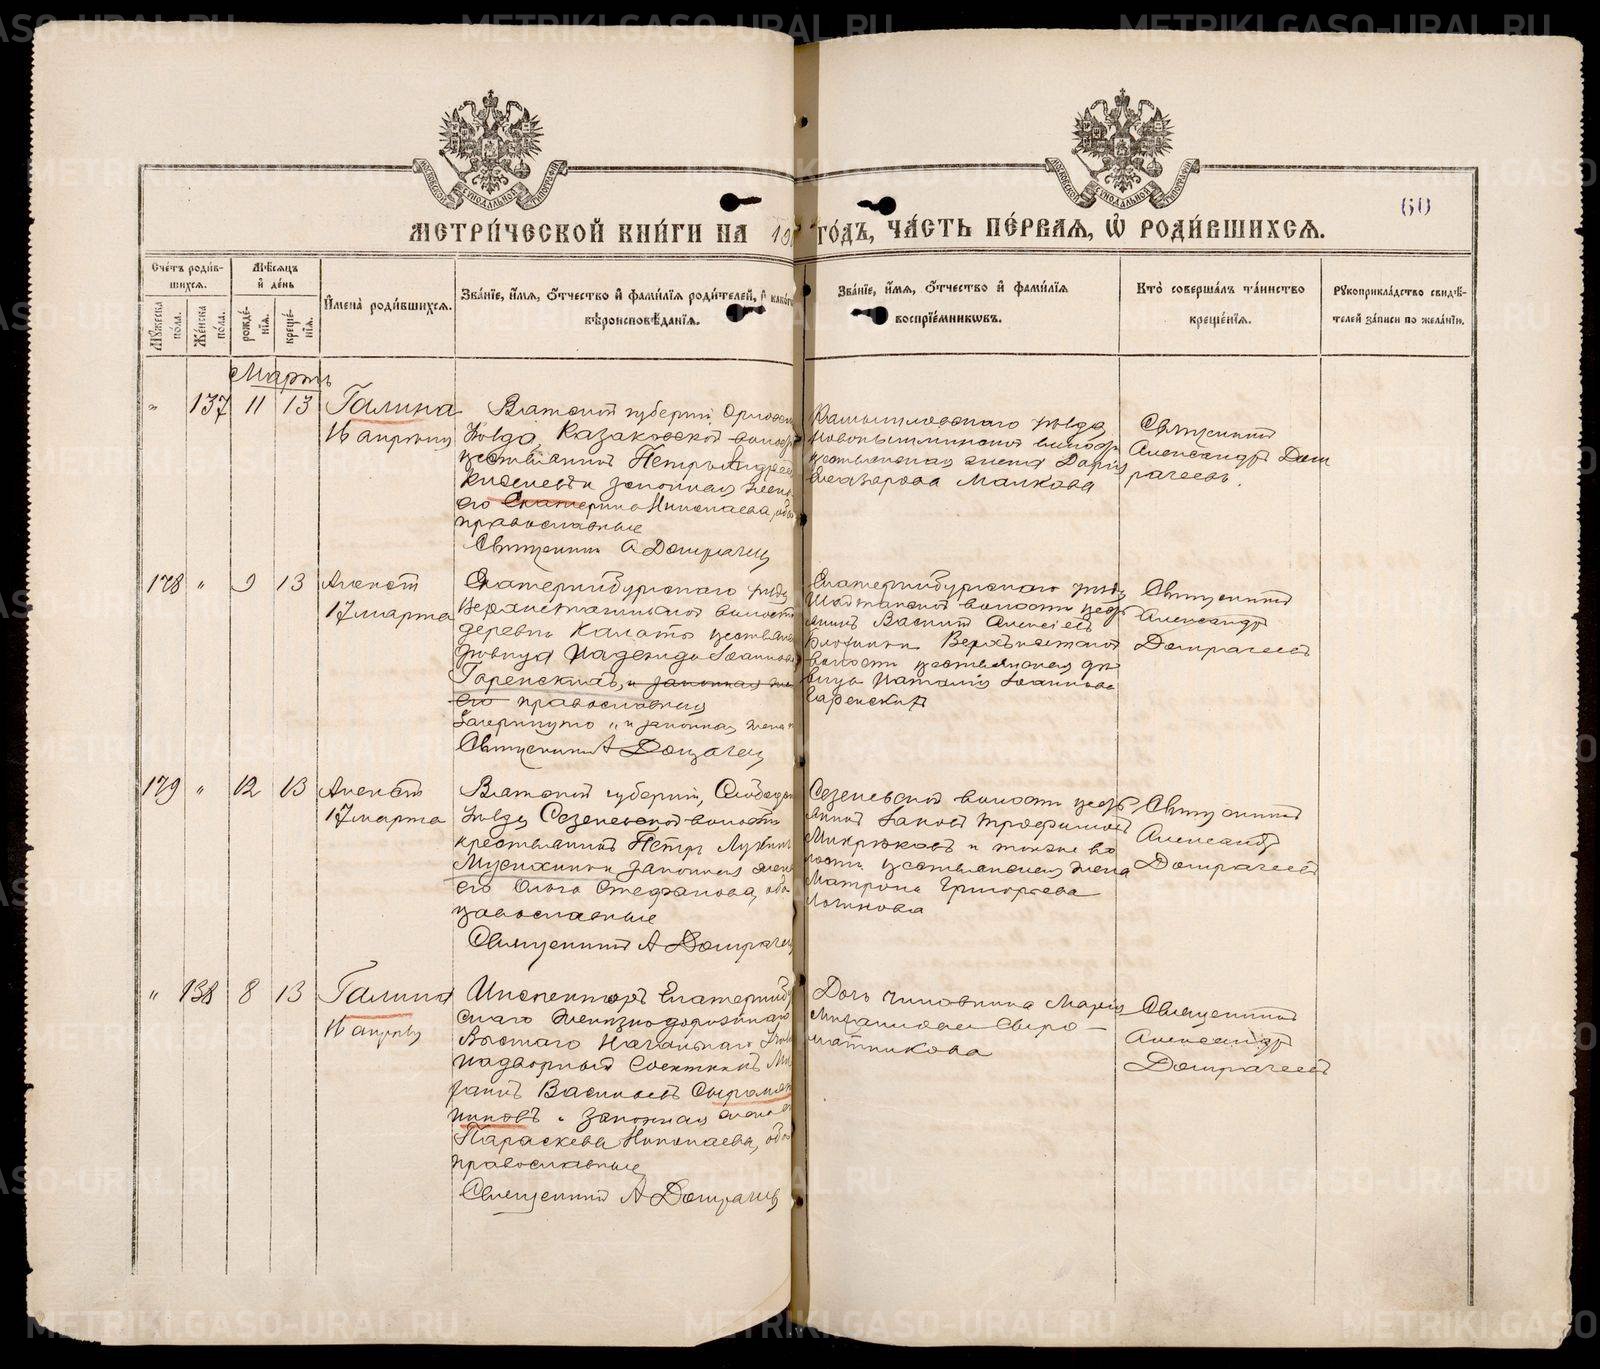 МЕТРИ́ЧЕСКОЙ КНИ́ГИ НА 19 ГО́ДЪ, ЧА́СТЬ ПЕ́РВАЯ, Ѡ҆ РОДИ́ВШИХСЯ.
60
Сче́тъ роди́в-
шихся.
Мꙋ́жеска
по́ла.
Же́нска
по́ла.
Мѣ́сяцъ
и҆ де́нь
рожде́-
нїѧ.
креще́-
нїѧ.
И҆мена̀ роди́вшихся.
Зва́нїе, и҆́мя, ѻ҆́тчество и҆ фами́лїя роди́телей, и҆ како́гѡ
вѣроисповѣ́данїѧ.
Зва́нїе, и҆́мя, ѻ҆́тчество и҆ фами́лїя
воспрїе́мникѡвъ.
Кто̀ соверша́лъ та́инство
креще́нїѧ.
Рꙋкоприкла́дство свидѣ́-
телей за́писи по жела́нїю.
Мартъ
" 137 11 13 Галина
16 апрѣля
Вятской губерніи, Орловск
уѣзда, Казаковской волост
крестьянинъ Петръ Андреев
и законная жена
его Екатерина Николаева, оба
православные
Священник А Домрачев
Камышловскаго уѣзда
Новопышминской волости
крестьянская жена Дарія
Елеазарова Малкова
Священникъ
Александръ Дом
рачеевъ.
178 " 9 13 Алексѣй
17 марта
Екатеринбургскаго уѣзда
волости
деревни крестьянск
дѣвица Надежда Іоаннова
Гаренскихъ, и законная жена
его православныя
Зачеркнуто „и законная жена
Священник А Домрачеев
Екатеринбургскаго уѣзда
волости крестья
нинъ Василій Алексѣевъ
волости крестьянская дѣ
вица Наталія Іоаннова
Гаренских
Священникъ
Александръ
Домрачеевъ
179 " 12 13 Алексѣй
17 марта
Вятской губерніи, Слободск
уѣзда Сезеневской волости
крестьянинъ Петръ Лукинъ
Мусихинъ и законная жена
его Ольга Стефанова, оба
православные
Священникъ А Домрачеев
Сезеневской волости крестья
нинъ Іаковъ Трофимовъ
Микрюковъ и тойже во
лости крестьянская жена
Матрона Григорьева
Логинова
Священникъ
Александръ
Домрачеевъ
" 138 8 13 Галина
16 апрѣля
Инспекторъ Екатеринбург
скаго Желѣзнодорожнаго
Высшаго Начальнаго Учил
надворный Совѣтникъ Ми
хаилъ Васильевъ Сыромят
никовъ и законная жена его
Параскева Николаева, оба
православные
Священникъ А Домрачеев
Дочь чиновника Марія
Михаилова Сыро-
мятникова
Священникъ
Александръ
Домрачеевъ
METRIKI.GASO-URAL.RU